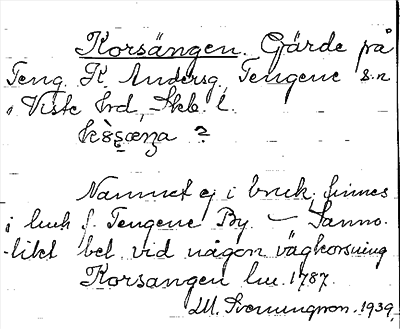 Korsängen. Gärde på
Teng K. Andersg, Tengene s:n
Viste hrd, Skb l.
?
Namnet ej i bruk, finnes
i luk f. Tengene By — Sanno-
likt bel vid någon vägkorsning
Korsangen lm. 1787.
M. 1939.